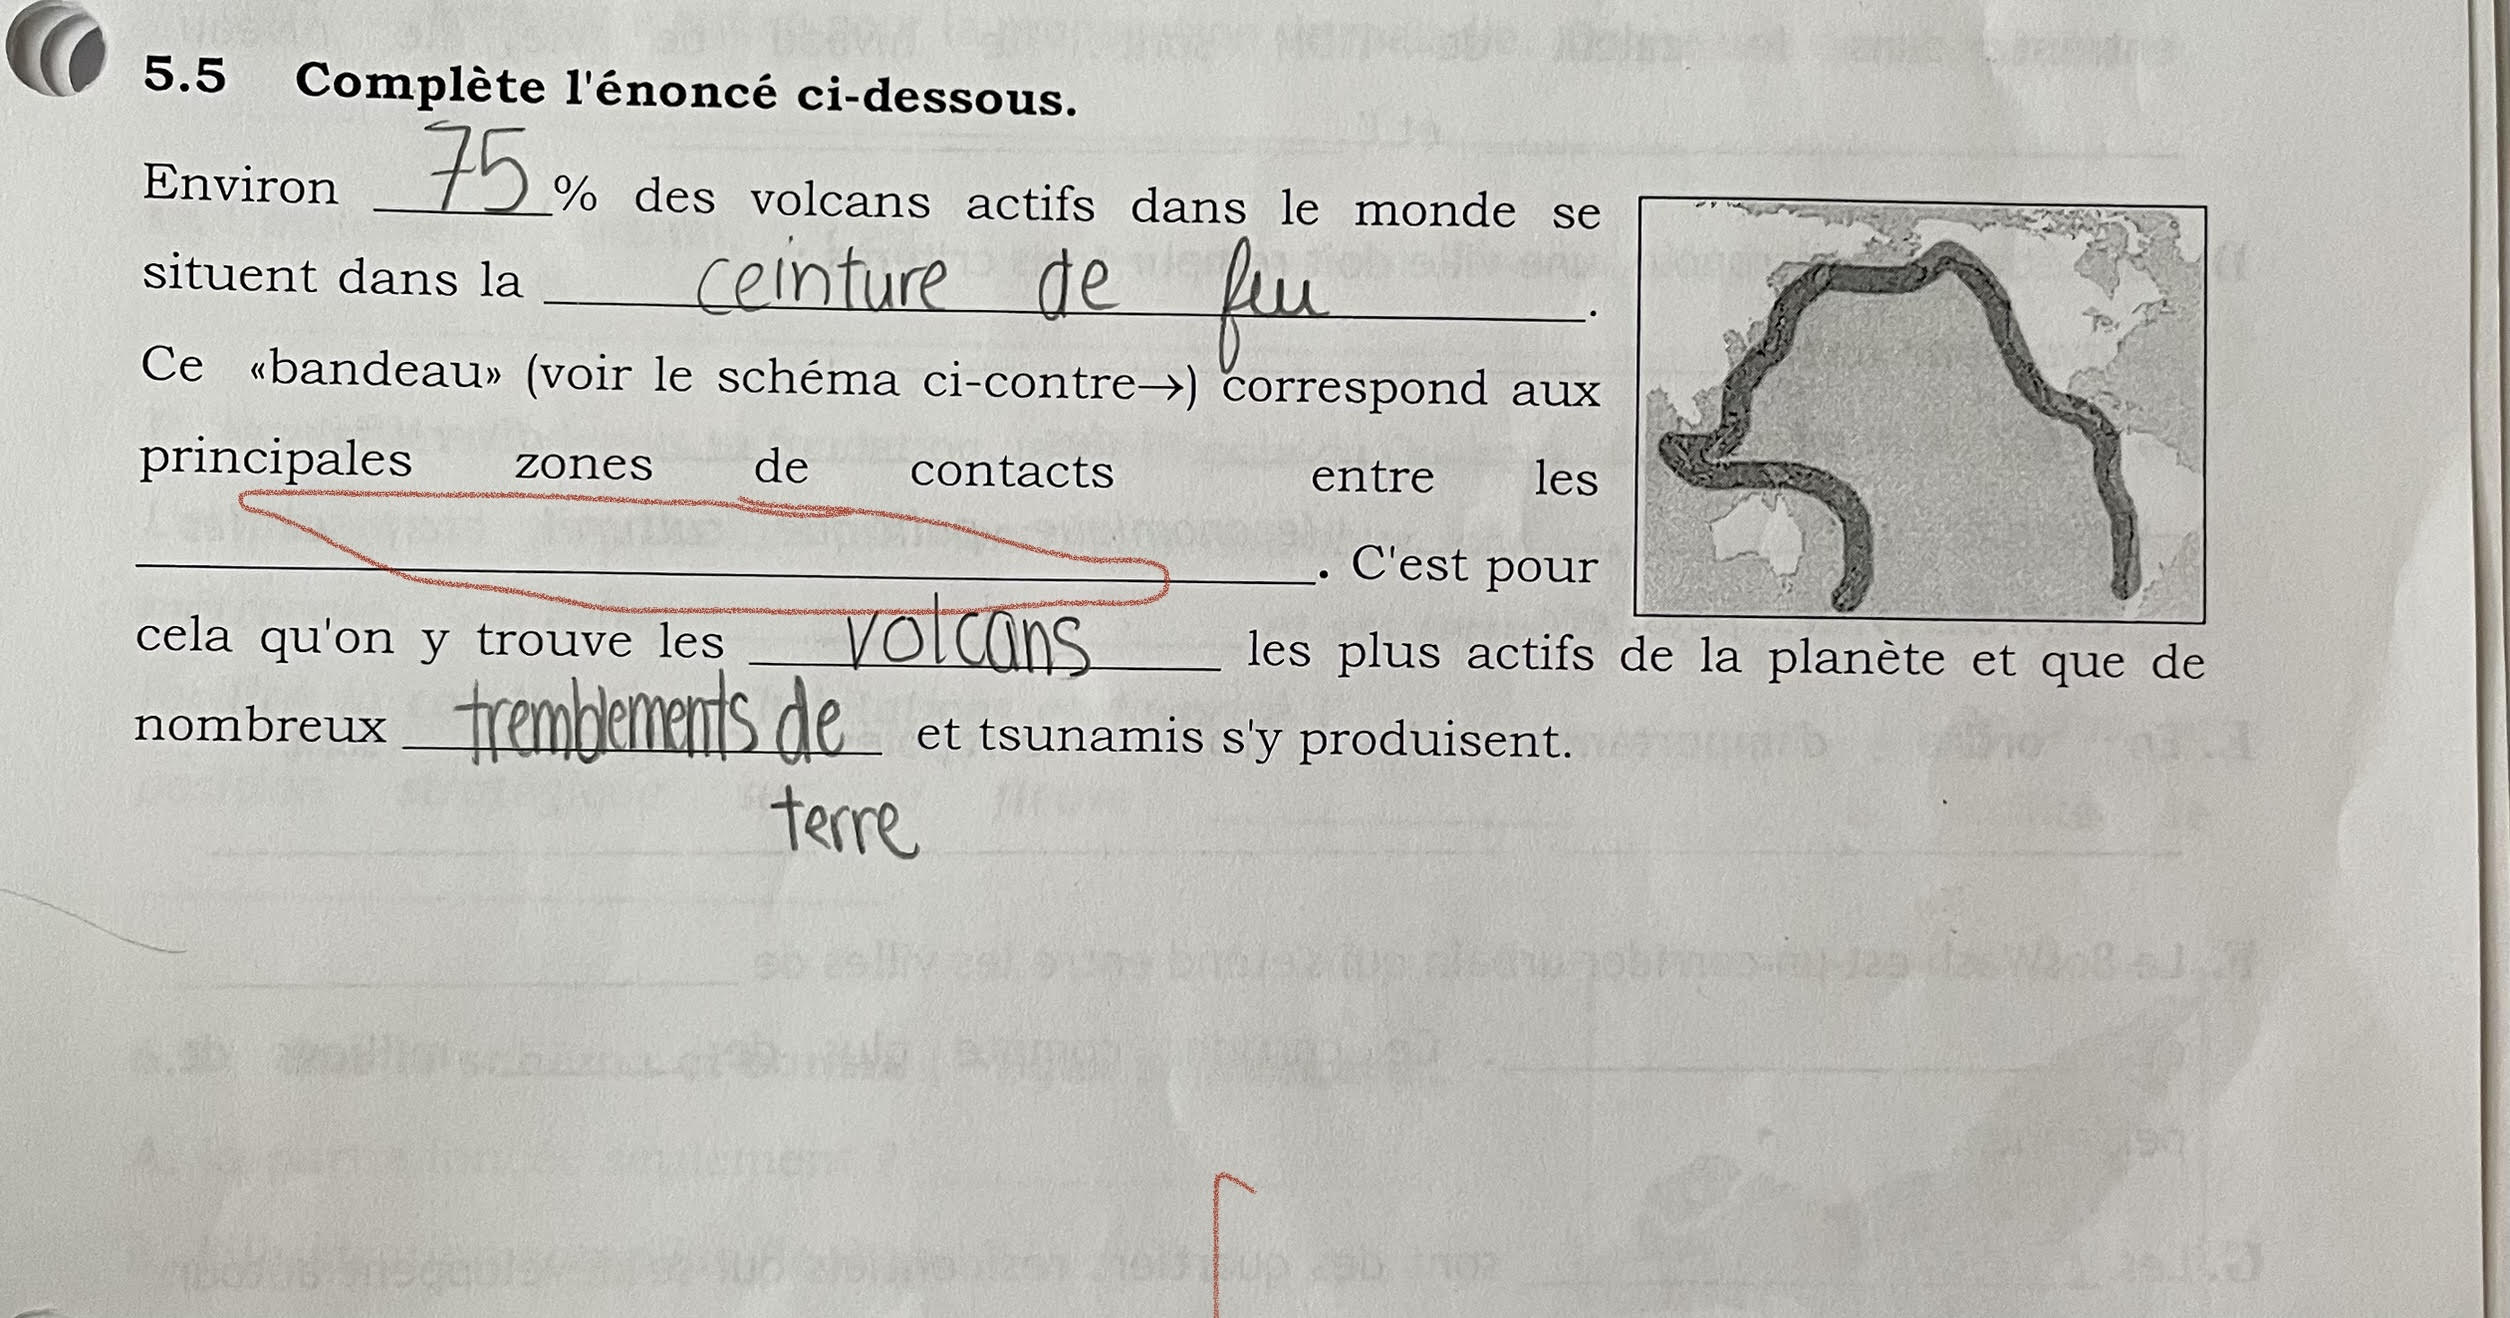 5.5 Complète l'énoncé ci-dessous.
Environ 75 % des volcans actifs dans le monde se
situent dans la ceinture de feu.
Ce «bandeau» (voir le schéma ci-contre→) correspond aux
principales zones de contacts entre les
. C'est pour
cela qu'on y trouve les volcans les plus actifs de la planète et que de
nombreux tremblements de et tsunamis s'y produisent.
terre